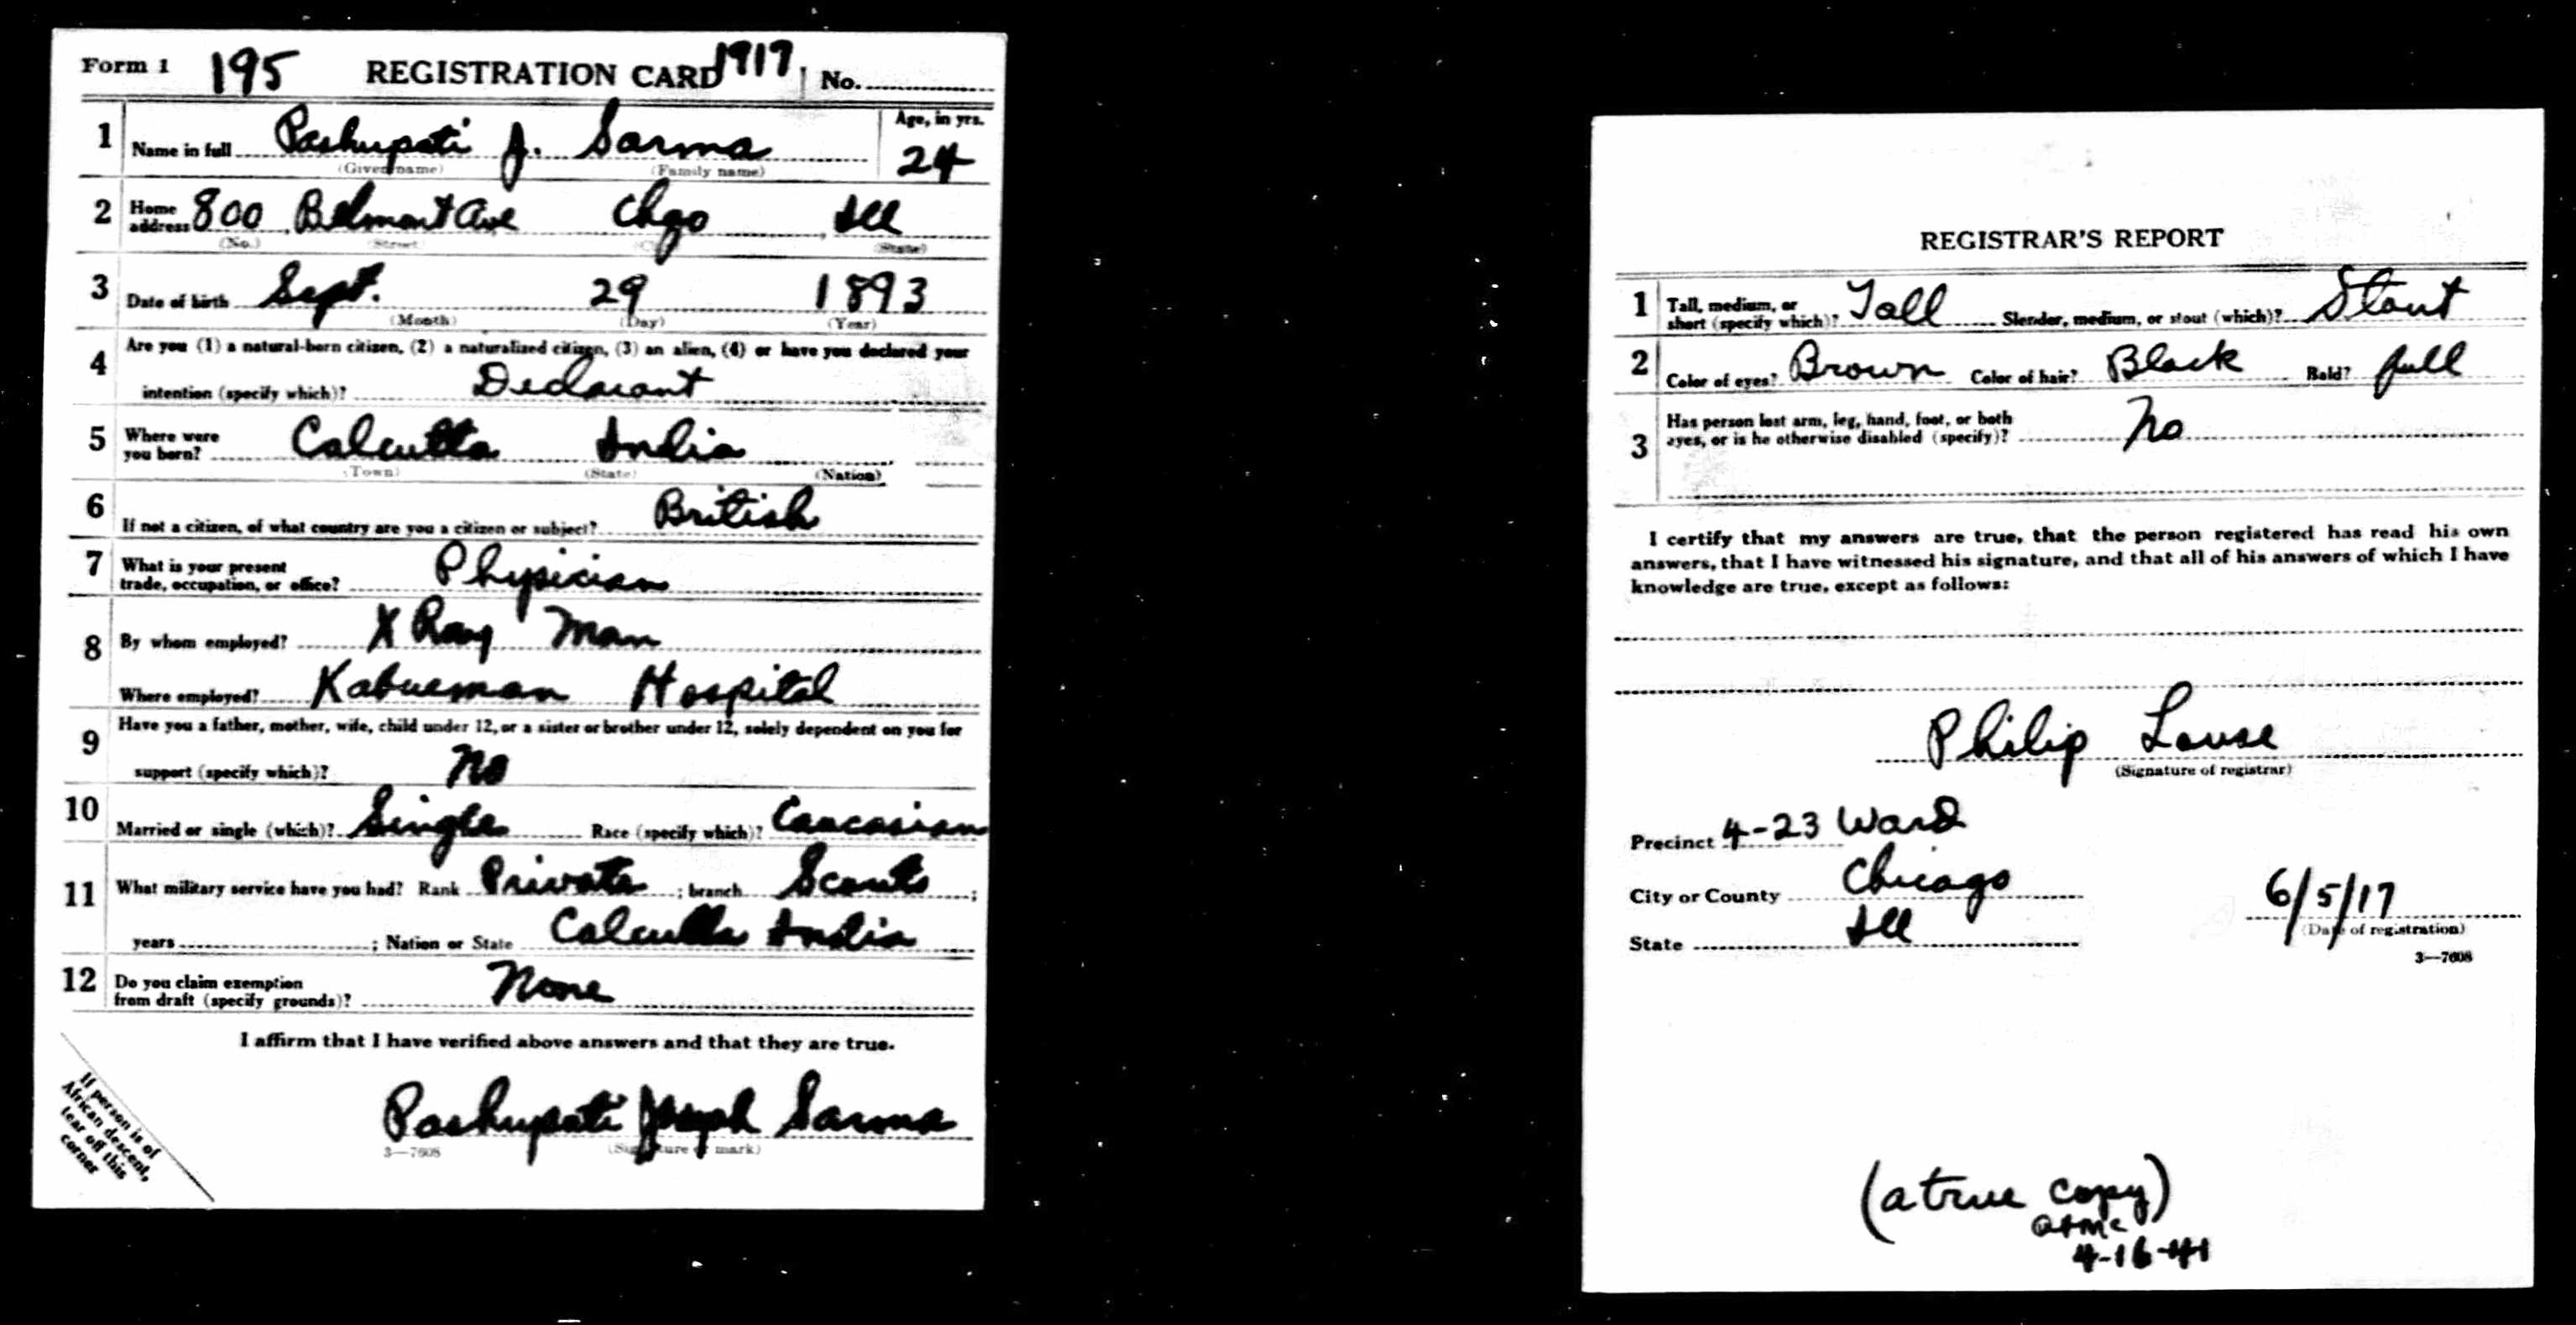 Form 1 195 REGISTRATION CARD 1917 No.
1 Name in full Pashupati J. Sarma Age, in yrs. 24
(Given name) (Family name)
2 Home address 800 Belmont Ave Chgo Ill
(No.) (Street) (City) (State)
3 Date of birth Sept. 29 1893
(Month) (Day) (Year)
4 Are you (1) a natural-born citizen, (2) a naturalized citizen, (3) an alien, (4) or have you declared your
intention (specify which)? Declarant
5 Where were you born? Calcutta India
(Town) (State) (Nation)
6 If not a citizen, of what country are you a citizen or subject? British
7 What is your present trade, occupation, or office? Physician
8 By whom employed? X Ray Man
Where employed? Hospital
9 Have you a father, mother, wife, child under 12, or a sister or brother under 12, solely dependent on you for
support (specify which)? No
10 Married or single (which)? Single Race (specify which)? Caucasian
11 What military service have you had? Rank Private ; branch Scouts ;
years ; Nation or State Calcutta India
12 Do you claim exemption from draft (specify grounds)? None
I affirm that I have verified above answers and that they are true.
Pashupati Joseph Sarma
3—7608 (Signature or mark)
If person is of
African descent,
tear off this
corner
REGISTRAR'S REPORT
1 Tall, medium, or short (specify which)? Tall Slender, medium, or stout (which)? Stout
2 Color of eyes? Brown Color of hair? Black Bald? full
3 Has person lost arm, leg, hand, foot, or both
eyes, or is he otherwise disabled (specify)? No
I certify that my answers are true, that the person registered has read his own
answers, that I have witnessed his signature, and that all of his answers of which I have
knowledge are true, except as follows:
Philip Louse
(Signature of registrar)
Precinct 4-23 Ward
City or County Chicago
State Ill
6/5/17
(Date of registration)
3—7608
(a true copy)
4-16-41